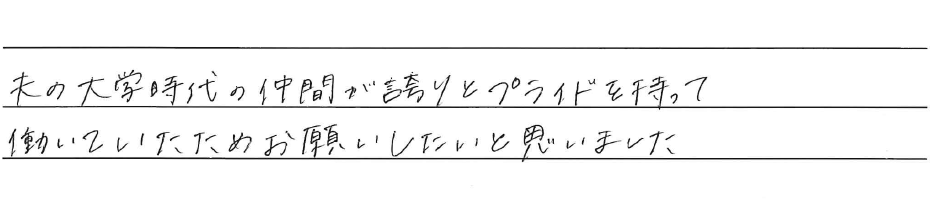 夫の大学時代の仲間が誇りとプライドを持って
働いていたためお願いしたいと思いました